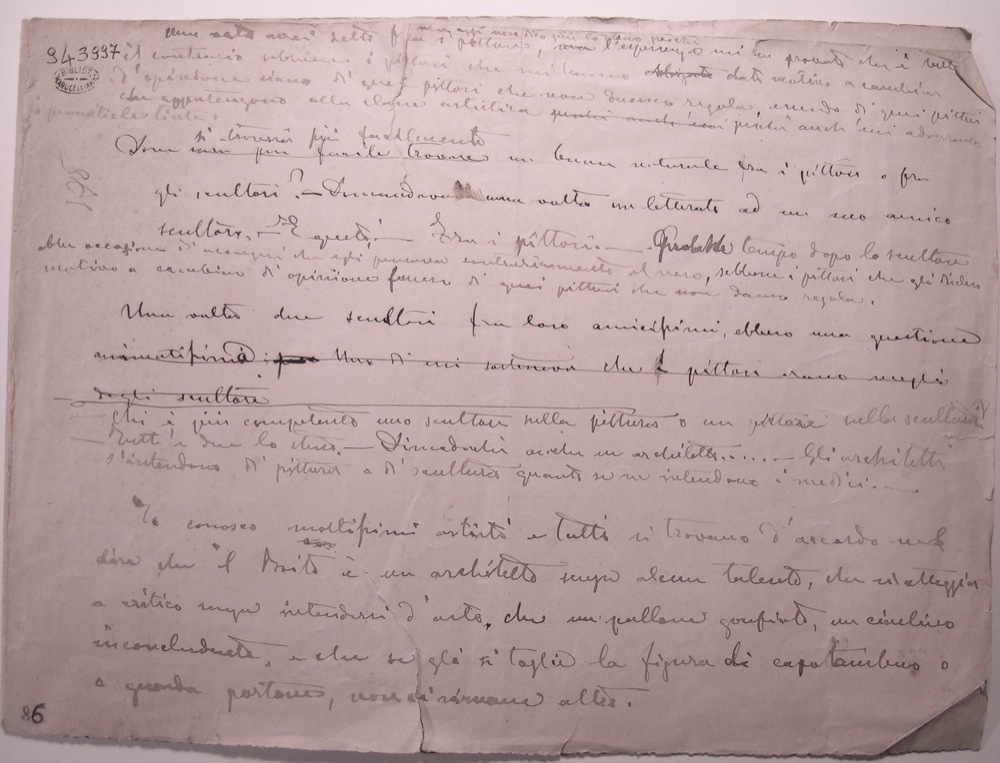 Una volta avrei detto fra i pittori, ora l'esperienza mi ha provato che è tutto
il contrario sebbene i pittori che mi hanno dato motivo a cambiar
d'opinione siano di quei pittori che non danno regola, essendo di quei pittori
che appartengono alla classe artistica
943997
BIBLIOT MARUCELLIANA
si troverà più facilmente
Dove sarà più facile trovare un buon naturale fra i pittori o fra
gli scultori? — Dimandava una volta un letterato ad un suo amico
scultore. — E questi: — Fra i pittori. — Qualche tempo dopo lo scultore
ebbe occasione d'accorgersi che egli pensava contrariamente al vero, sebbene i pittori che gli diedero
motivo a cambiar di opinione fossero di quei pittori che non danno regola.
Una volta due scultori fra loro amicissimi, ebbero una questione
animatissima. Uno di essi sosteneva che i pittori erano meglio
degli scultori
Chi è più competente uno scultore sulla pittura o un pittore sulla scultura?
— Tutti e due lo stesso. — Dimandachi anche un architetto..... — Gli architetti
s'intendono di pittura e di scultura quanto se ne intendono i medici. —
Io conosco moltissimi artisti e tutti si trovano d'accordo nel
dire che il Boito è un architetto senza alcun talento, che si atteggia
a critico senza intendersi d'arte, che un pallone gonfiato, un ciarlino
inconcludente, e che se gli si toglie la figura di capotamburo o
a guarda portone, non ci rimane altro.
86